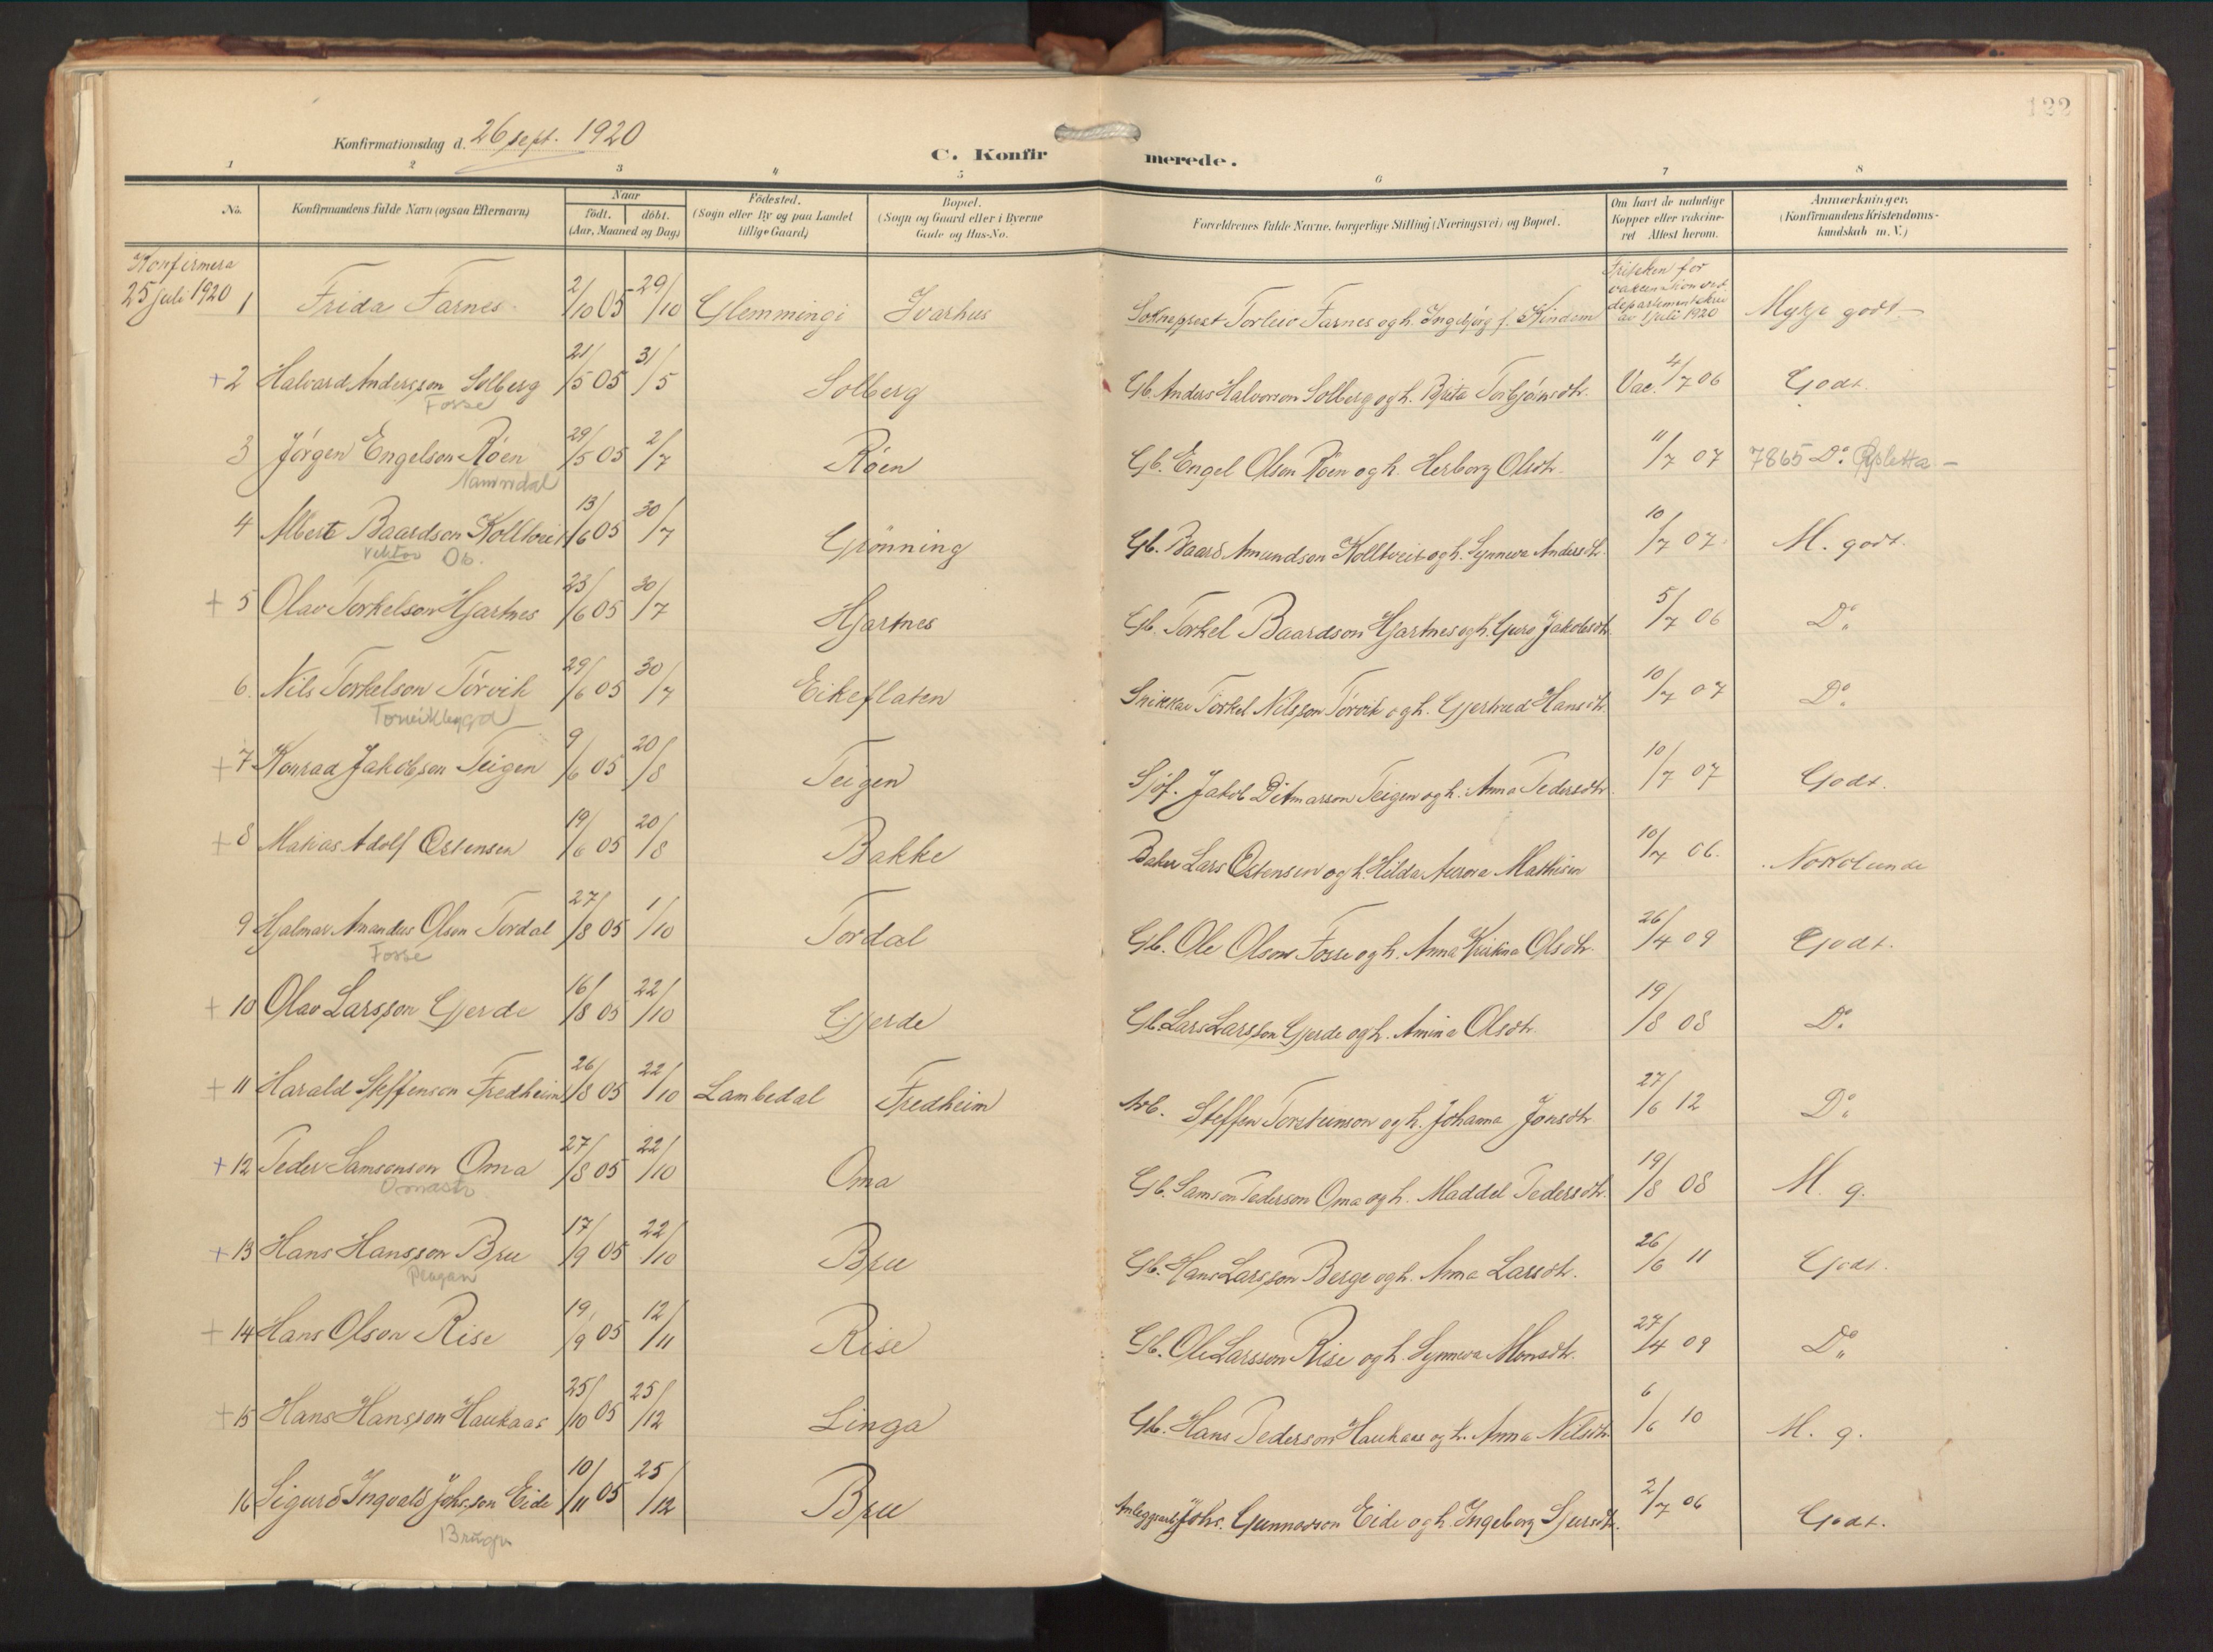 122
Konfirmationsdag d. 26 sept. 1920
C. Konfirmerede.
1 2 3 4 5 6 7 8
No. Konfirmandens fulde Navn (ogsaa Efternavn) Naar födt. döbt. (Aar, Maaned og Dag) Födested. (Sogn eller By og paa Landet tillige Gaard) Bopæl. (Sogn og Gaard eller i Byerne Gade og Hus-No. Forældrenes fulde Navne, borgerlige Stilling (Næringsvei) og Bopæl. Om havt de naturlige Kopper eller vakcineret Attest herom. Anmærkninger. (Konfirmandens Kristendomskundskab m. V.)
Konfirmera
25 juli 1920
1 Frida Farnes 2/10 05 29/10 Glemmingi Ivarhus Sokneprest Torleiv Farnes og h. Ingebjørg f. Kindem Friteken for vakcination ved departementskriv av 1 juli 1920 Mykje godt
+ 2 Halvard Andersson Solberg 21/5 05 31/5 Solberg Gb. Anders Halvorson Solberg og h. Brita Torbjørnsdtr. Vac. 4/7 06 Godt.
Fosse
3 Jørgen Engelson Røen 29/5 05 2/7 Røen Gb. Engel Olson Røen og h. Herborg Olsdtr. 11/7 07 7865 Do.
4 Albert Baardson Kolltveit 13/6 05 30/7 Grønning Gb. Baard Amundson Kolltveit og h. Synneva Andersdtr. 10/7 07 M. godt.
+ 5 Olav Torkelson Hjartnes 23/6 05 30/7 Hjartnes Gb. Torkel Baardson Hjartnes og h. Guro Jakobsdtr. 5/7 06 Do.
6. Nils Torkelson Tørvik 29/6 05 30/7 Eikeflaten Snikkar Torkel Nilsson Tørvik og h. Gjertrud Hansdtr. 10/7 07 Do.
Torvikbygd
+ 7 Konrad Jakobson Teigen 9/6 05 20/8 Teigen Sjøf. Jakob Ditmarson Teigen og h. Anna Pedersdtr. 10/7 07 Godt.
+ 8 Matias Adolf Østensen 19/6 05 20/8 Bakke Baker Lars Østensen og h. Hilda Aurora Mathisen 10/7 06. Nokolunde
9 Hjalmar Amandus Olson Tordal 27/8 05 1/10 Tordal Gb. Ole Olson Fosse og h. Anna Kristina Olsdtr. 26/4 09 Godt.
Fosse
+ 10 Olav Larsson Gjerde 16/8 05 22/10 Gjerde Gb. Lars Larsson Gjerde og h. Amina Olsdtr. 19/8 08 Do.
+ 11 Harald Steffenson Fredheim 26/8 05 22/10 Lambedal Fredheim Arb. Steffen Torsteinson og h. Johanna Jonsdtr 27/6 12 Do.
+ 12 Peder Samsonson Oma 27/8 05 22/10 Oma Gb. Samson Pederson Oma og h. Maddel Pedersdtr. 19/8 08 M. g.
+ 13 Hans Hansson Bru 17/9 05 22/10 Bru Gb. Hans Larsson Berge og h. Anna Larsdtr. 26/6 11 Godt.
+ 14 Hans Olson Rise 19/9 05 12/11 Rise Gb. Ole Larsson Rise og h. Synneva Monsdtr. 27/4 09 Do.
+ 15 Hans Hansson Haukaas 25/10 05 25/12 Linga Gb. Hans Pederson Haukaas og h. Anna Nilsdtr. 6/6 10 M. g.
16 Sigurd Ingvald Johs.son Eide 10/11 05 25/12 Bru Anleggsarb. Johs. Gunnarson Eide og h. Ingeborg Sjursdtr. 2/7 06 Godt.